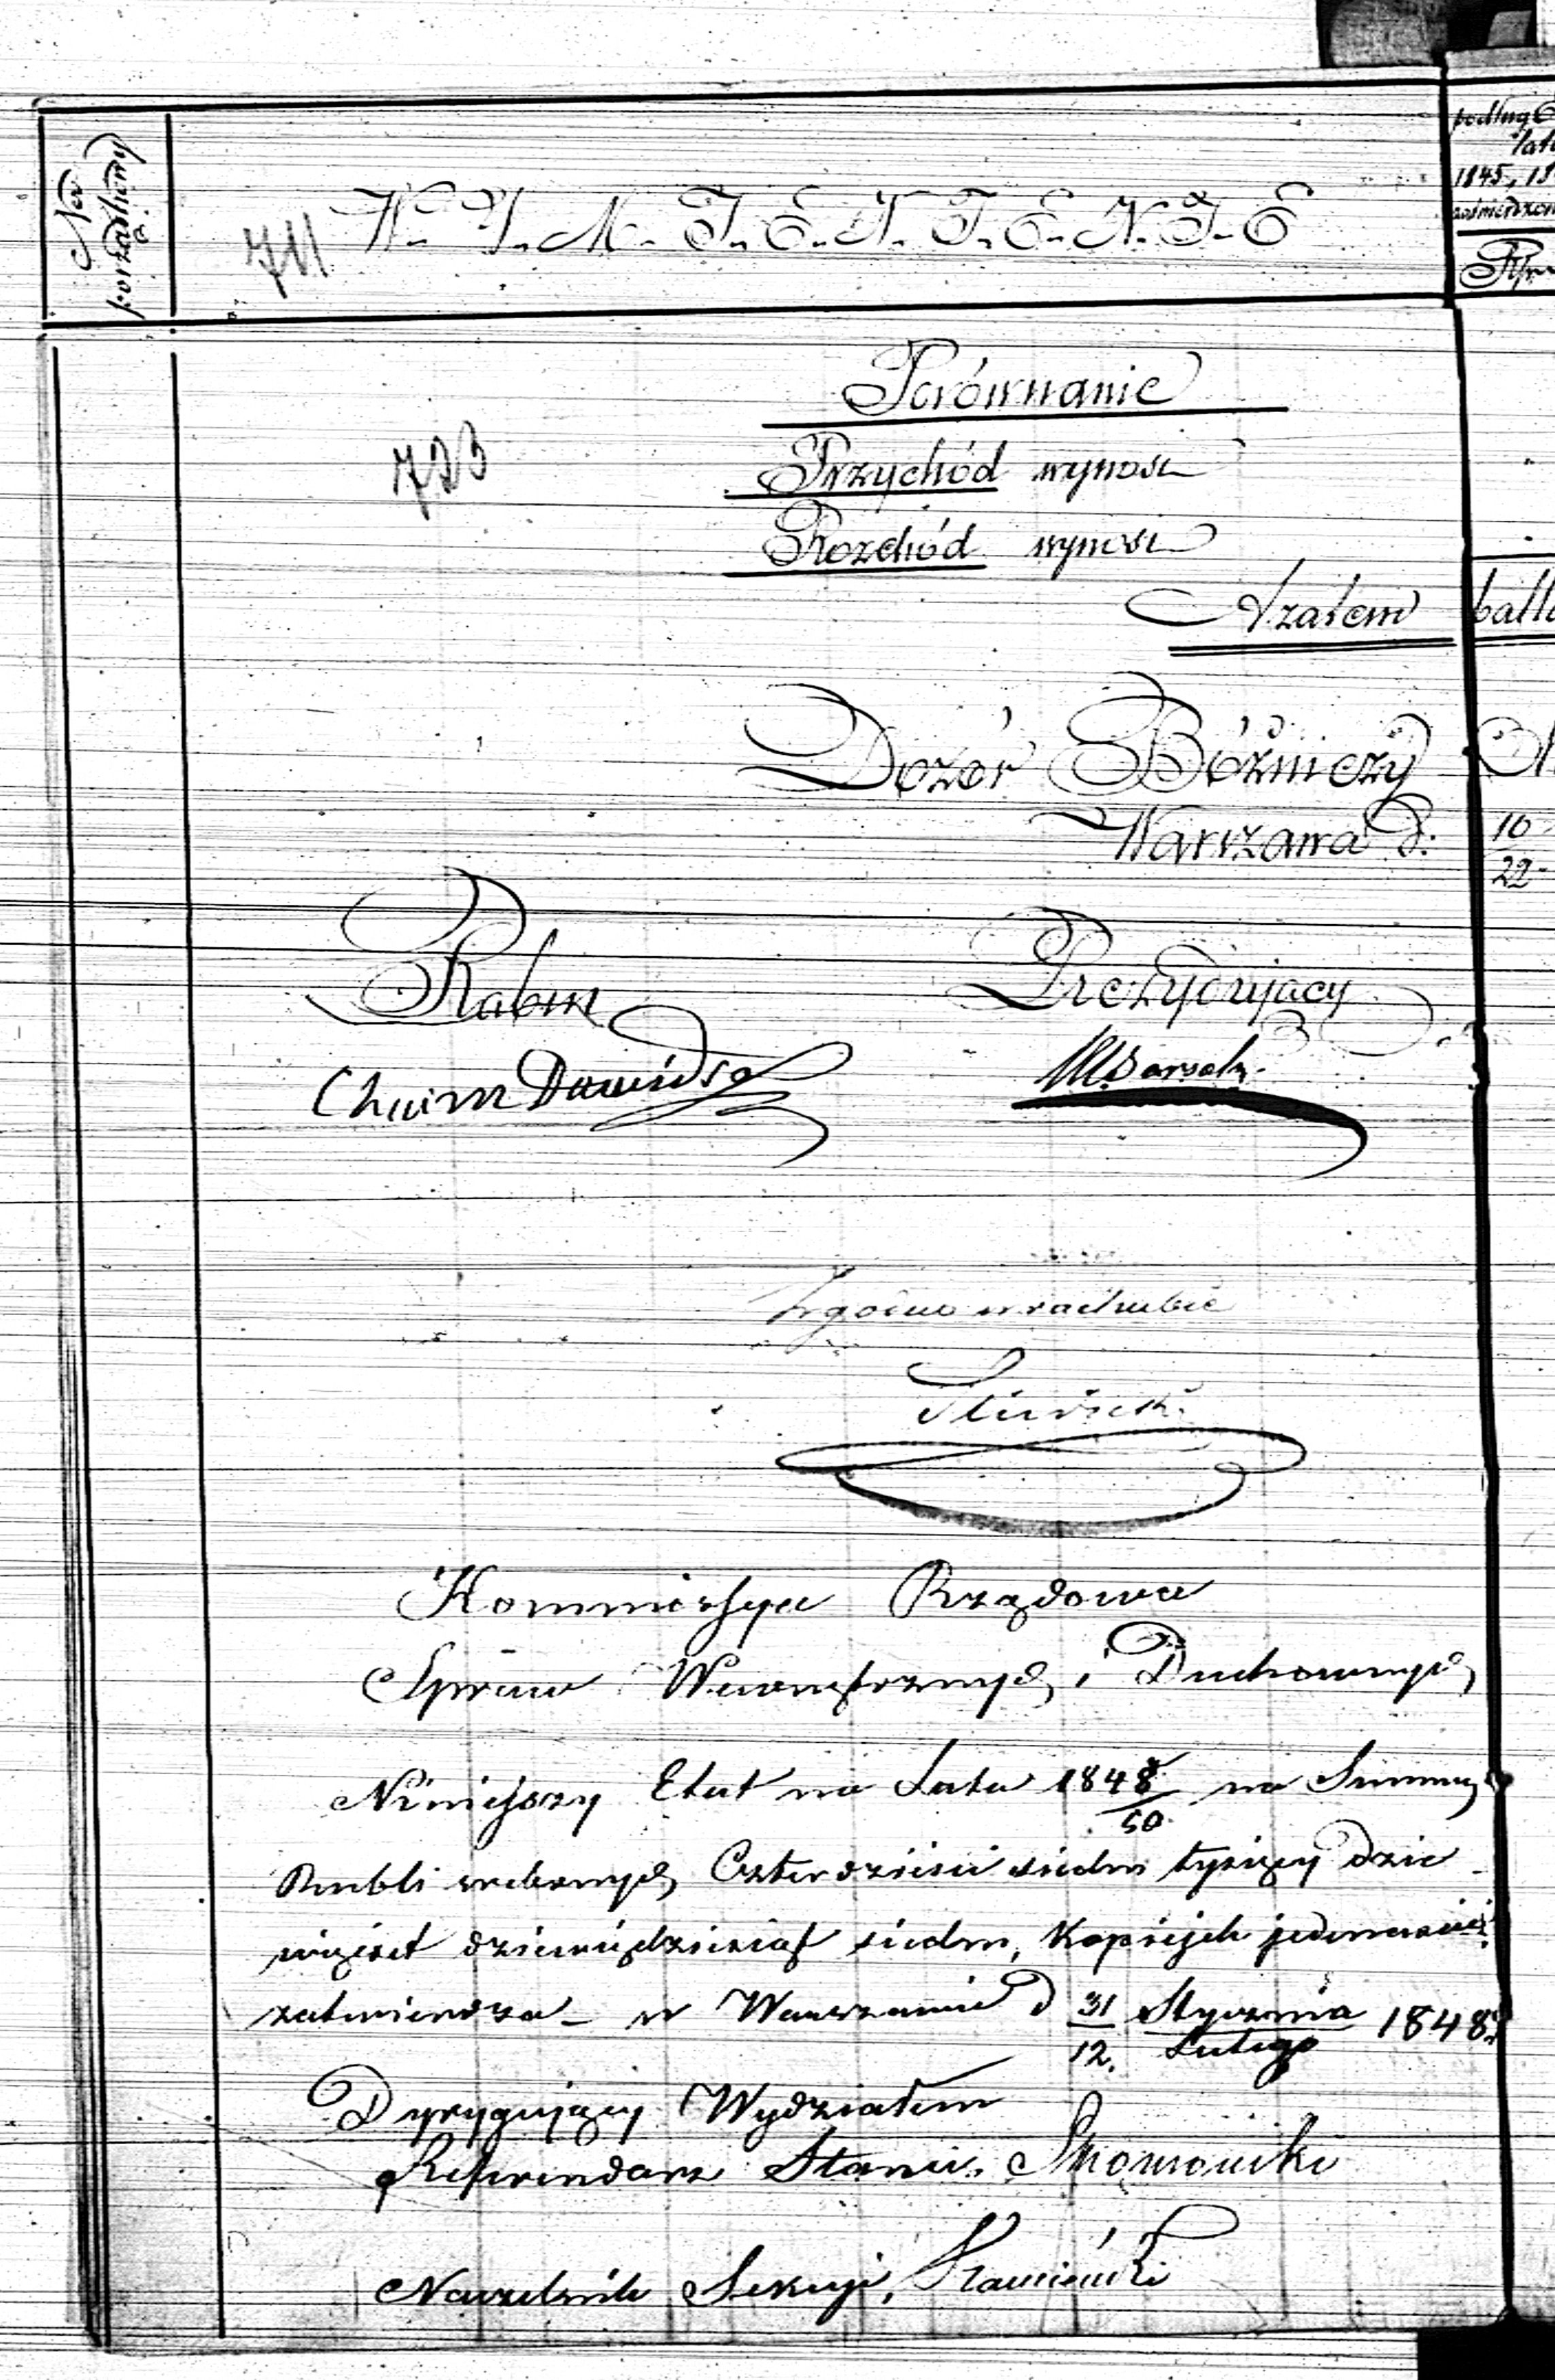 Nr porządkowy
711
W-Y-M-I-E-N-I-E-N-I-E
podług
lat
1845, 18
Porównanie
723
Przychód wynosi
Rozchód wynosi
A zatem
Dozór Bóżniczy
Warszawa d: 10
22
Rabin
Prezydujący
Chaim Dawids
Zgodno w rachubie
Kommissya Rządowa
Spraw Wewnętrznych i Duchownych
Ninieyszy Etat na Lata 1848/50 na Summę
Rubli srebrnych Czterdzieści siedm tysięcy dzie-
więćset dziewięćdziesiąt siedm, Kopiejek jedenaście
zatwierdza - w Warszawie d 31/12. Stycznia/Lutego 1848.
Dyrygujący Wydziałem
Referendarz Stanu,
Naczelnik Sekcyi,